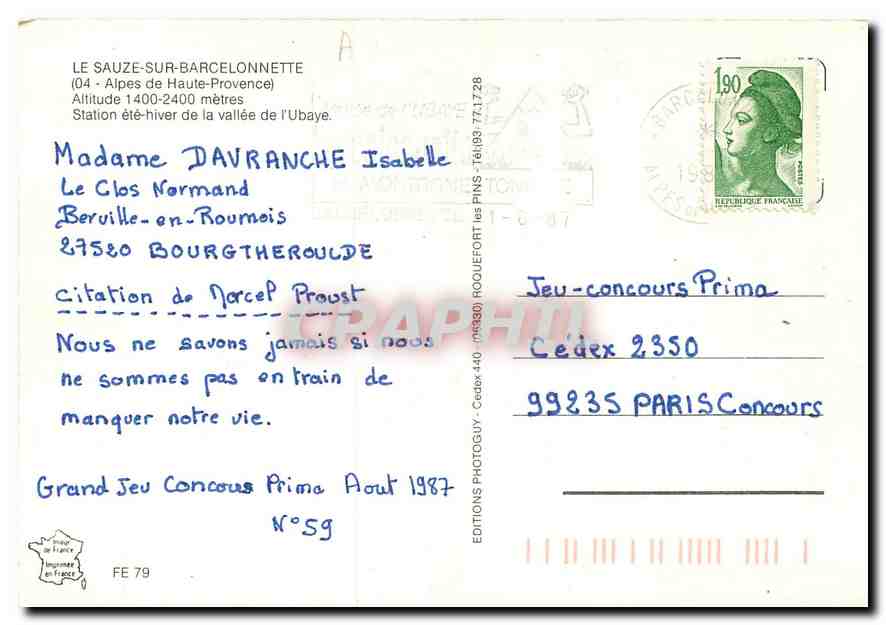 A
LE SAUZE-SUR-BARCELONNETTE
(04 - Alpes de Haute-Provence)
Altitude 1400-2400 mètres
Station été-hiver de la vallée de l'Ubaye.
Madame DAVRANCHE Isabelle
Le Clos Normand
Berville-en-Roumois
27520 BOURGTHEROULDE
Citation de Marcel Proust
Nous ne savons jamais si nous
ne sommes pas en train de
manquer notre vie.
Grand Jeu Concous Prima Aout 1987
N°59
FE 79
Imprimée
en France
de France
EDITIONS PHOTOGUY - Cedex 440 - (06330) ROQUEFORT les PINS - Tél.(93.77.17.28
1,90
POSTES
REPUBLIQUE FRANÇAISE
Jeu-concours Prima
Cédex 2350
99235 PARIS Concours
CPAPHIL